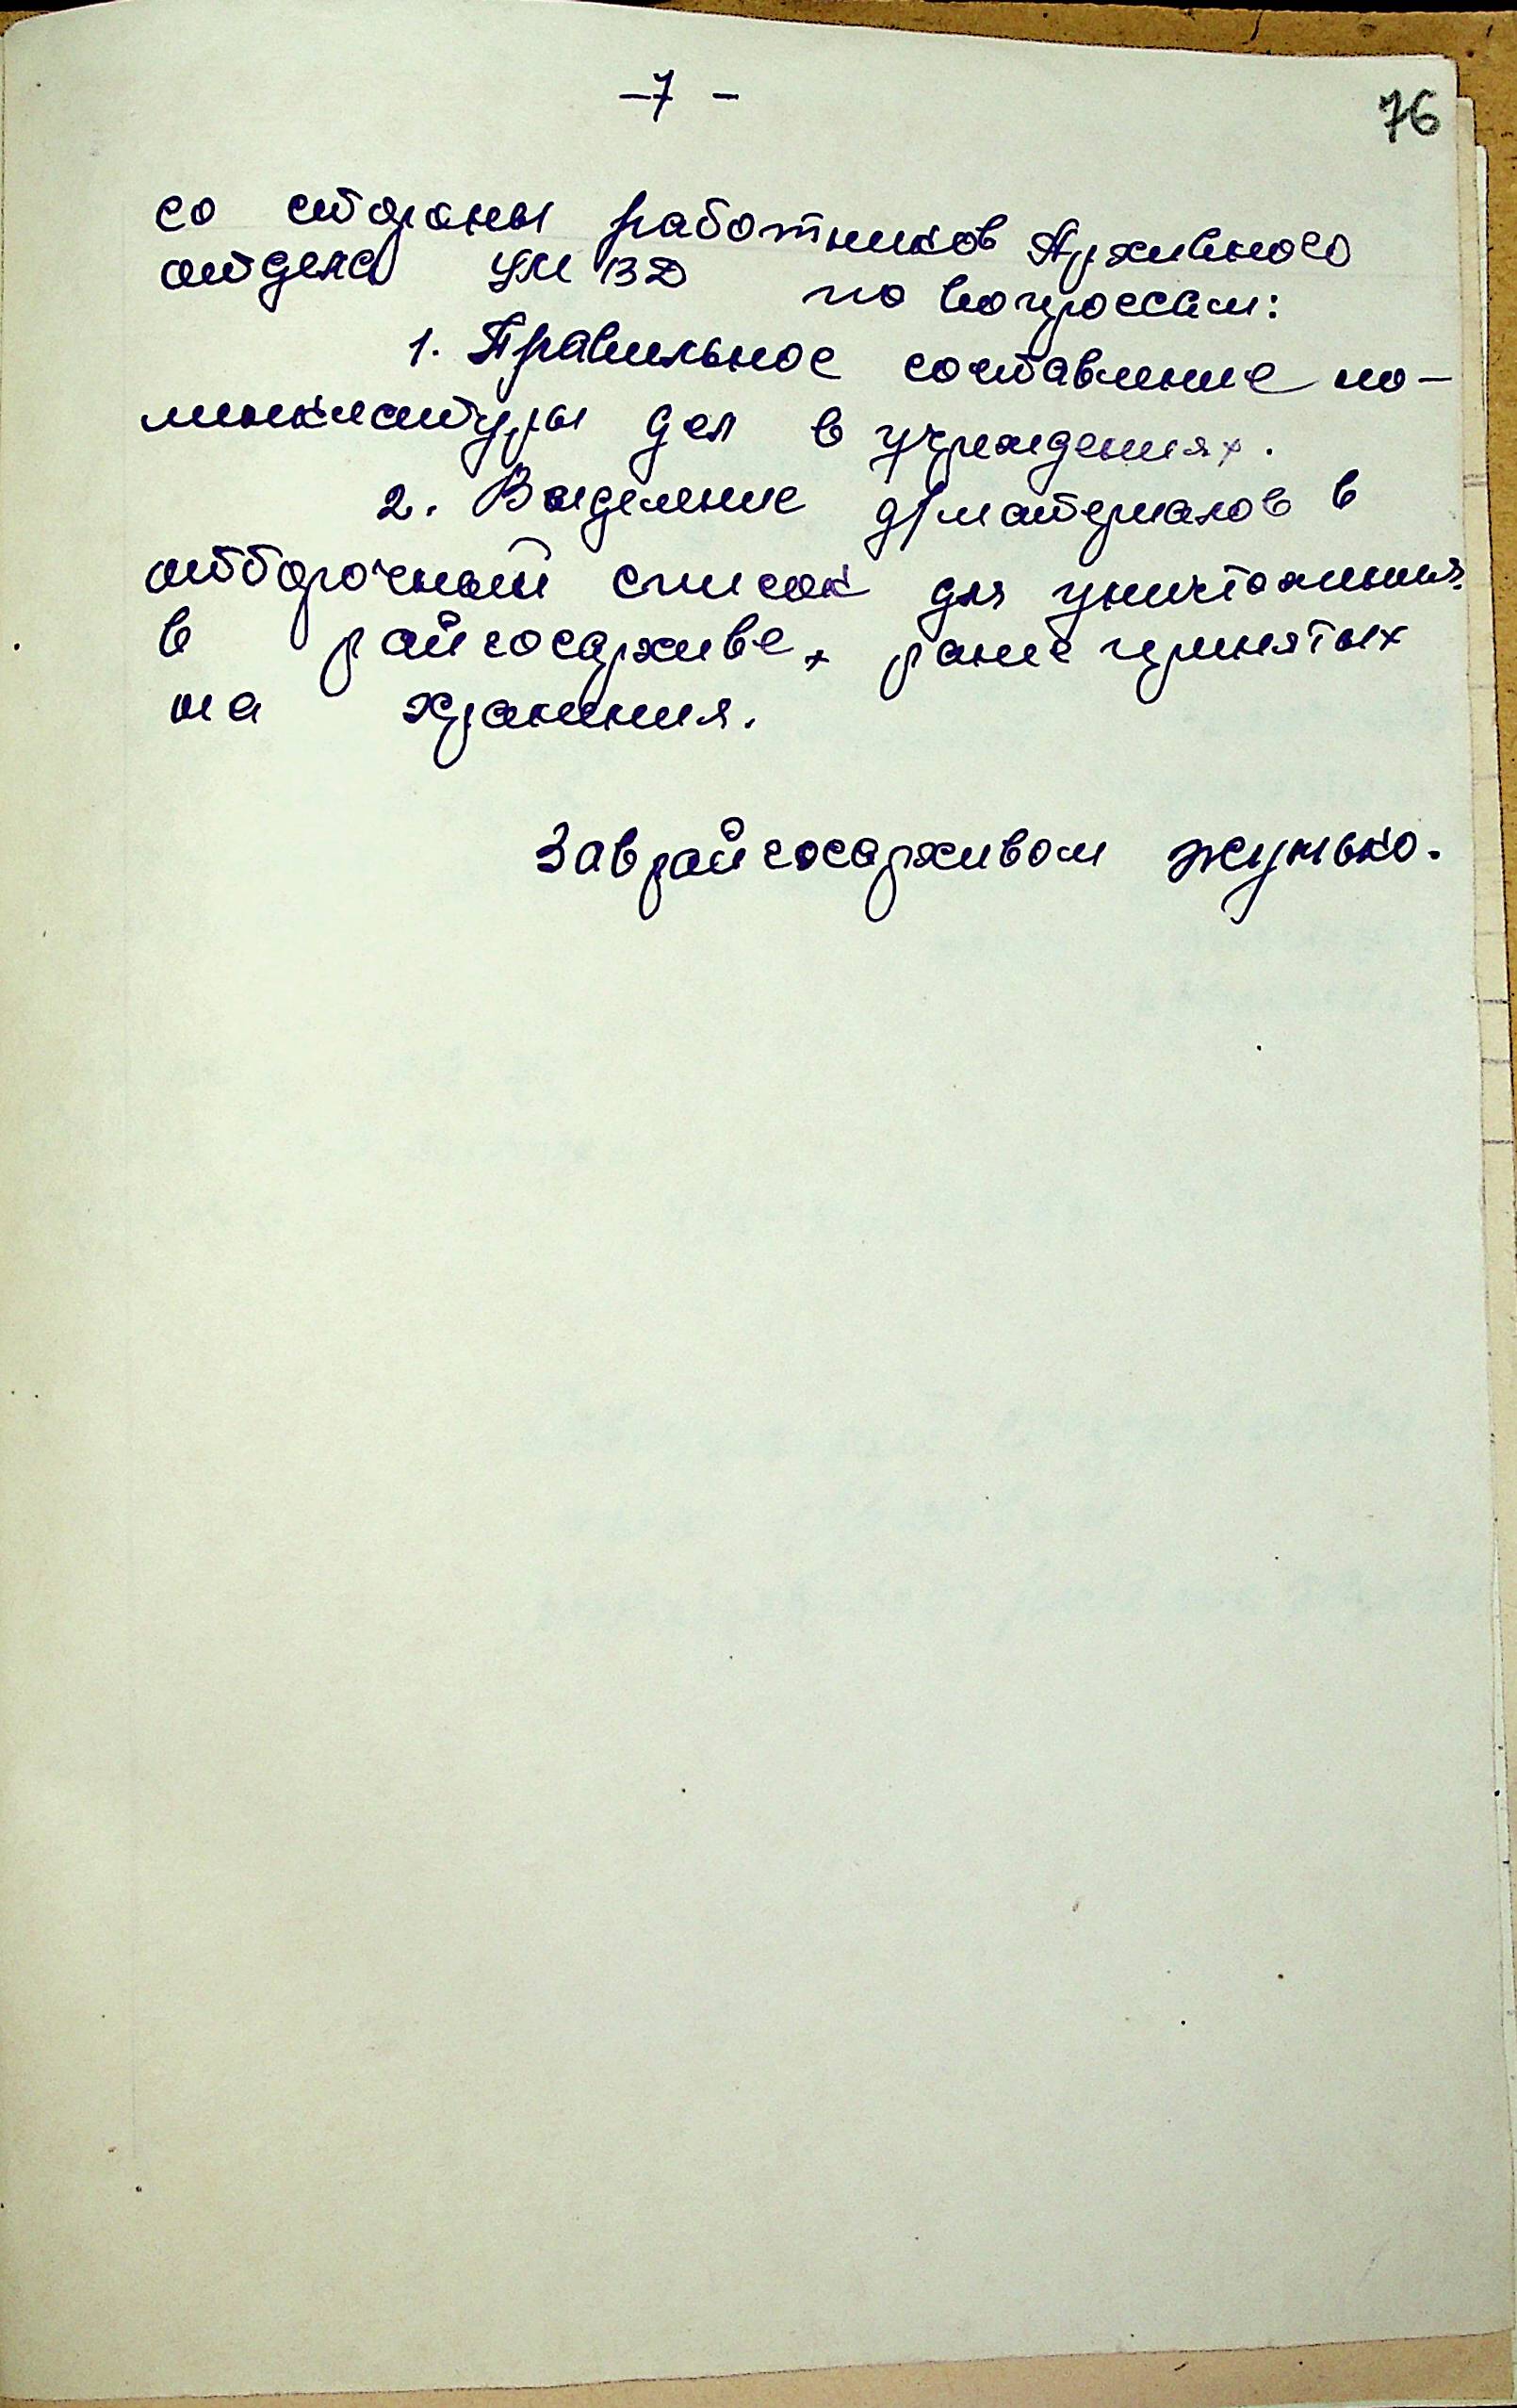 -7-
76
со стороны работников Архивного
отдела УМВД по вопросам:
1. Правильное составление но-
менклатуры дел в учреждениях.
2. Выделение д/материалов в
отборочный список для уничтожения
в райгосархиве, ранее принятых
на хранения.
Заврайгосархивом Жунько.